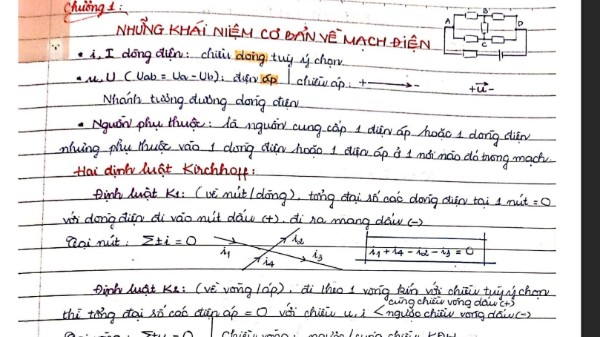 Chương 1:
NHỮNG KHÁI NIỆM CƠ BẢN VỀ MẠCH ĐIỆN
A B C D
• i, I dòng điện: chiều dòng tuỳ ý chọn
• u, U (Uab = Ua - Ub): điện áp | chiều áp: + → - +u→-
Nhánh tương đương dòng điện
• Nguồn phụ thuộc: là nguồn cung cấp 1 điện áp hoặc 1 dòng điện
nhưng phụ thuộc vào 1 dòng điện hoặc 1 điện áp ở 1 nơi nào đó trong mạch
Hai định luật Kirchhoff:
Định luật K1: (về nút/dòng), tổng đại số các dòng điện tại 1 nút = 0
với dòng điện đi vào nút dấu (+), đi ra mang dấu (-)
Tại nút: Σ±i = 0 i1 i2 i3 i4 i1 + i4 - i2 - i3 = 0
Định luật K2: (về vòng/áp), đi theo 1 vòng kín với chiều tuỳ ý chọn
thì tổng đại số các điện áp = 0 với chiều u, i < cùng chiều vòng dấu (+)
ngược chiều vòng dấu (-)